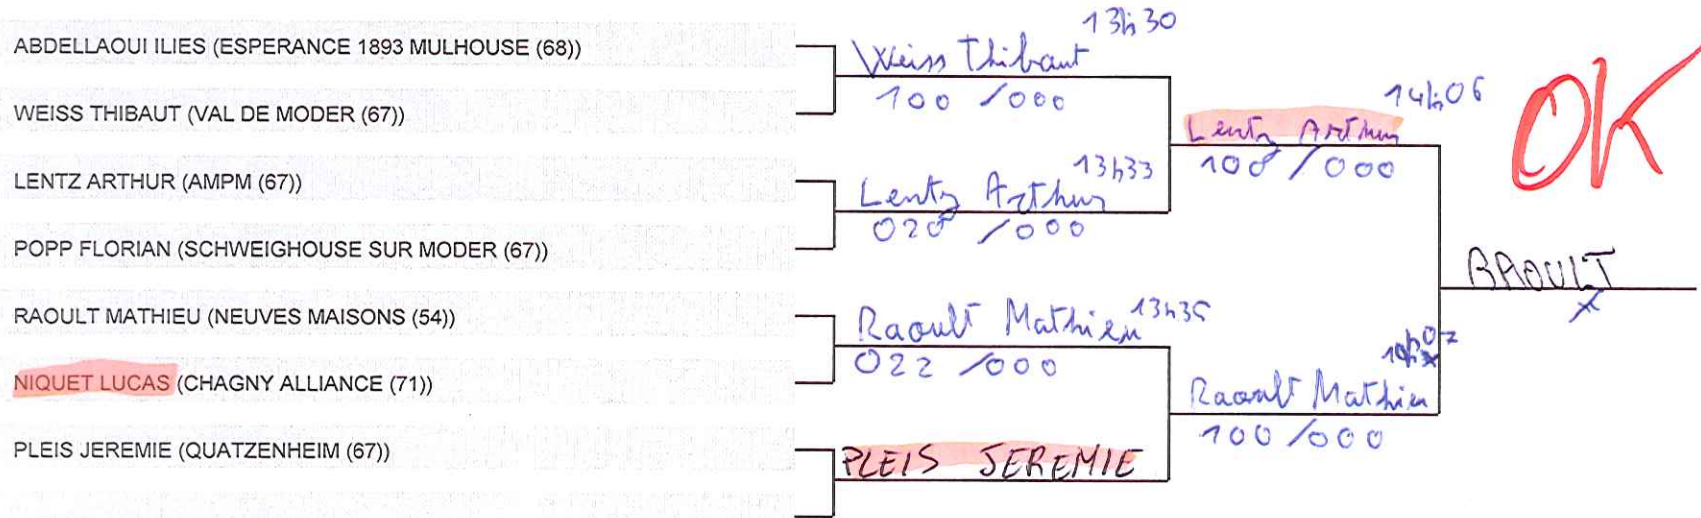 ABDELLAOUI ILIES (ESPERANCE 1893 MULHOUSE (68))
WEISS THIBAUT (VAL DE MODER (67))
LENTZ ARTHUR (AMPM (67))
POPP FLORIAN (SCHWEIGHOUSE SUR MODER (67))
RAOULT MATHIEU (NEUVES MAISONS (54))
NIQUET LUCAS (CHAGNY ALLIANCE (71))
PLEIS JEREMIE (QUATZENHEIM (67))
13h30
Weiss Thibaut
100 /000
13h33
Lentz Arthur
020 /000
Raoult Mathieu 13h35
022 /000
PLEIS JEREMIE
14h06
Lentz Arthur
100 /000
Raoult Mathieu
100 /000
RAOULT
OK